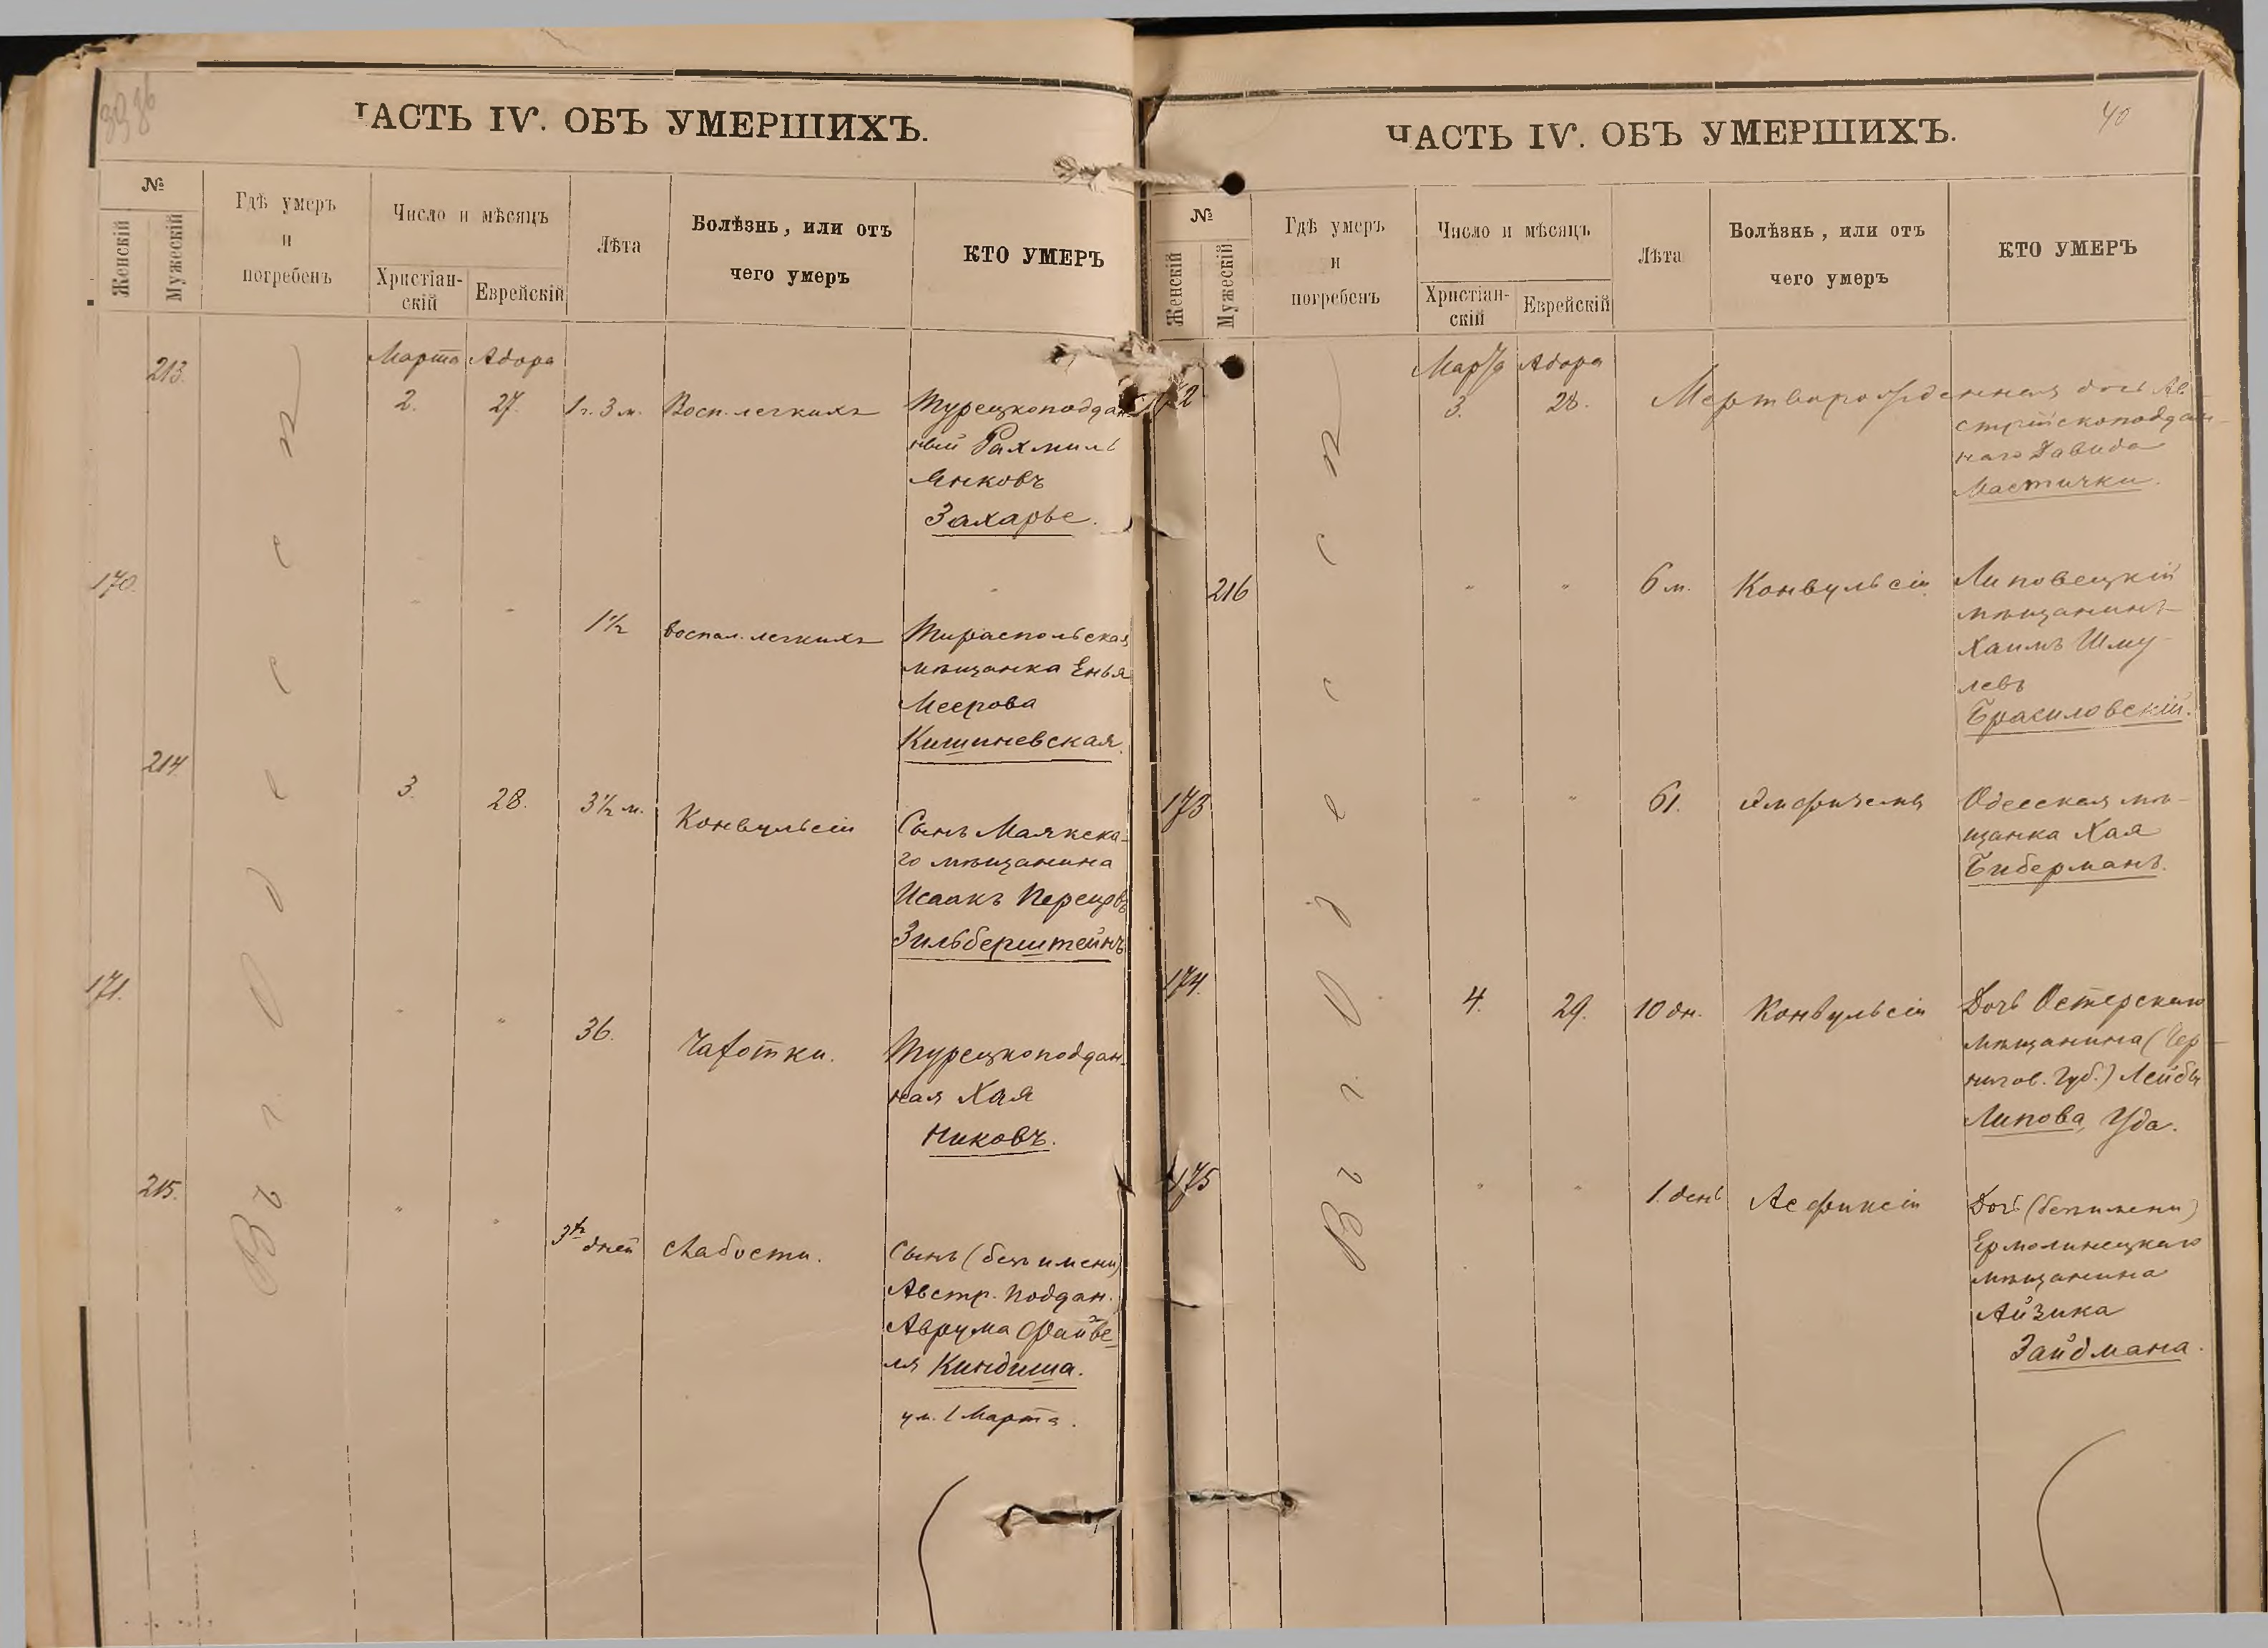 ЧАСТЬ IV. ОБЪ УМЕРШИХЪ.
№
Женскій
Мужескій
Гдѣ умеръ
и
погребенъ
Число и мѣсяцъ
Христіан-
скій
Еврейскій
Лѣта
Болѣзнь, или отъ
чего умеръ
КТО УМЕРЪ
Въ г. Одессѣ
Марта Адора
213. 2. 27. 1 г. 3 м. Восп. легкихъ Турецкоподдан-
ный Рахмиль
Янковъ
Захарье.
170. " " 1½ Воспал. легкихъ Тираспольская
мѣщанка Енья
Меерова
Кишиневская.
214. 3. 28. 3½ м. Конвульсіи Сынъ Маякска-
го мѣщанина
Исаакъ Перецовъ
Зильберштейнъ
171. " " 36. Чахотки. Турецкоподдан-
ная Хая
215. " " 3хъ дней Слабости. Сынъ (безъ имени)
Австр. поддан.
Аврума Файве-
ля Киндиша.
ум. 1 Марта.
ЧАСТЬ IV. ОБЪ УМЕРШИХЪ.
40
№
Женскій
Мужескій
Гдѣ умеръ
и
погребенъ
Число и мѣсяцъ
Христіан-
скій
Еврейскій
Лѣта
Болѣзнь, или отъ
чего умеръ
КТО УМЕРЪ
Въ г. Одессѣ
Марта Адора
3. 28. Мертворожденная дочь Ав
стрійскоподдан-
наго Давида
Мастички.
216 " " 6 м. Конвульсіи Липовецкій
мѣщанинъ
Хаимъ Шму-
левъ
Брасиловскій.
173 " " 61. Одесская мѣ-
щанка Хая
Биберманъ.
174. 4. 29. 10 дн. Конвульсіи Дочь Остерскаго
мѣщанина (Чер-
нигов. губ.) Лейбы
Липова, Уда.
175 " " 1. день Асфиксіи Дочь (безъ имени)
Ермолинецкаго
мѣщанина
Айзика
Зайдмана.